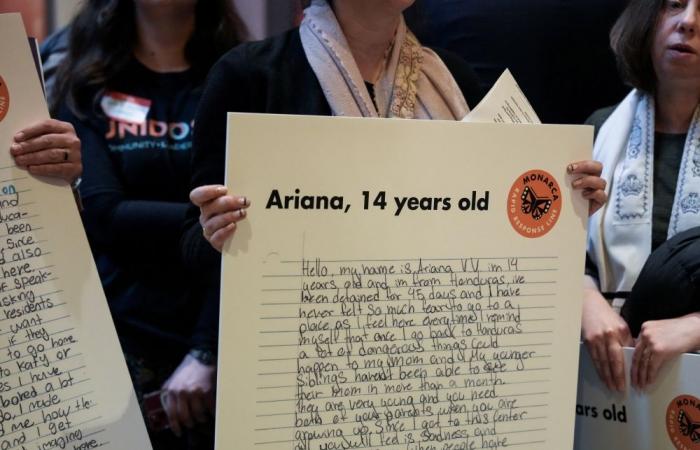 on
and
duca-
been
Since
d also
here.
of speak-
asking
residents
want
if they
to go home
to Katy or
es I have
bored a lot
go, I made
me how the
and I get
d imaging
more.
UNIDOS
COMMUNITY
Ariana, 14 years old
MONARCA
RAPID RESPONSE LINE
Hello, my name is Ariana V.V. im 14
years old and im from Honduras, ive
been detained for 45 days and I have
never felt so much fear to go to a
place as I feel here everytime I remind
myself that once I go back to Honduras
a lot of dangerous things could
happen to my mom and My younger
Siblings haven't been able to see
their mom in more than a month.
they are very young and you need
both of your parents when you are
growing up. Since I got to this Center
all you will feel is Sadness, and
when people have
ars old
MONARCA
RAPID RESPONSE LINE